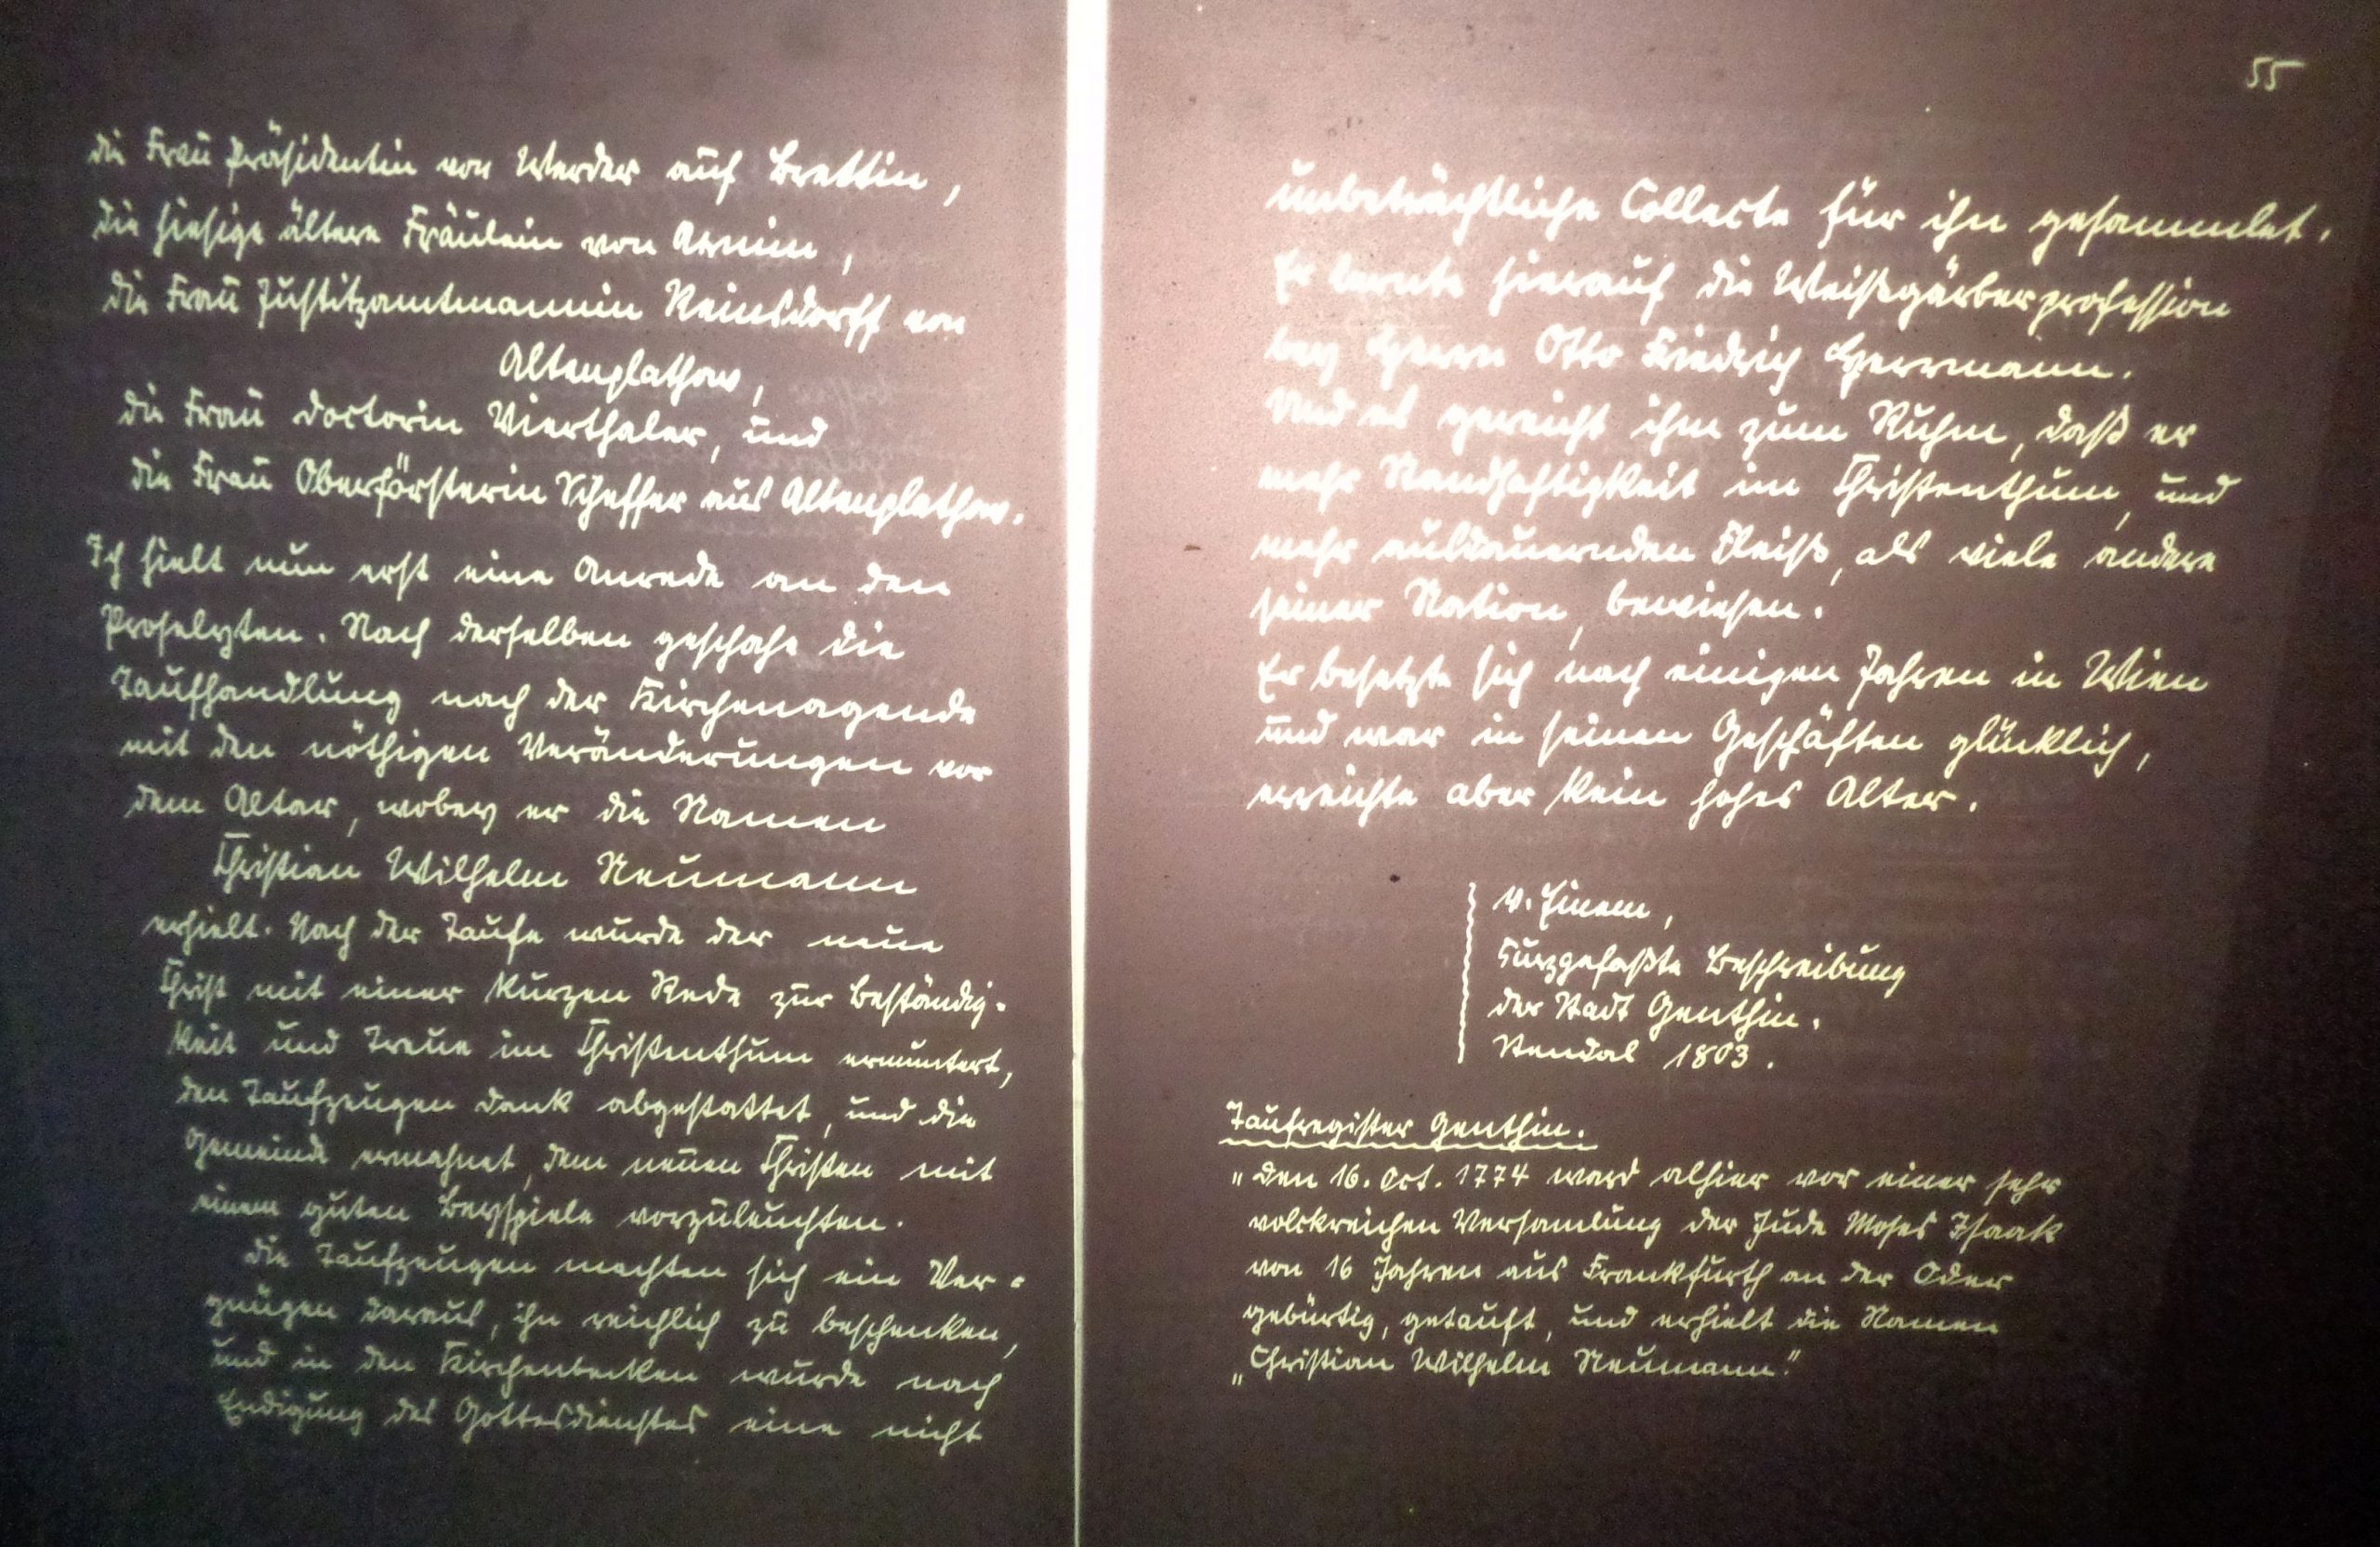 die Frau Präsidentin von Werder auf Brettin,
die hiesige ältere Fräulein von Arnim,
die Frau Justitzamtmannin Reinsdorff von
Altenplathow,
die Frau Doctorin Vierthaler, und
die Frau Oberförsterin Scheffer aus Altenplathow.
Ich hielt nun erst eine Anrede an den
Proselyten. Nach derselben geschahe die
Taufhandlung nach der Kirchenagende
mit den nöthigen Veränderungen vor
dem Altar, wobey er die Namen
Christian Wilhelm Neumann
erhielt. Nach der Taufe wurde der neue
Christ mit einer kurzen Rede zur Beständig-
keit und Treue im Christenthum ermuntert,
den Taufzeugen Dank abgestattet, und die
Gemeinde ermahnet, dem neuen Christen mit
einem guten Beyspiele vorzuleuchten.
Die Taufzeugen machten sich ein Ver-
gnügen daraus, ihn reichlich zu beschenken,
und in den Kirchenbecken wurde nach
Endigung des Gottesdienstes eine nicht
55
unbeträchtliche Collecte für ihn gesammlet.
Er lernte hierauf die Weißgärberprofession
bey Herrn Otto Friedrich Herrmann.
Und es gereicht ihm zum Ruhm, daß er
mehr Standhaftigkeit im Christenthum, und
mehr ausdauernden Fleiß, als viele andere
seiner Nation, bewiesen.
Er besetzte sich nach einigen Jahren in Wien
und war in seinen Geschäften glücklich,
erreichte aber kein hohes Alter.
v. Einem,
Kurzgefaßte Beschreibung
der Stadt Genthin.
Stendal 1803.
Taufregister Genthin.
"Den 16. Oct. 1774 ward alhier vor einer sehr
volckreichen Versamlung der Jude Moses Isaak
von 16 Jahren aus Frankfurth an der Oder
gebürtig, getauft, und erhielt die Namen
„Christian Wilhelm Neumann."